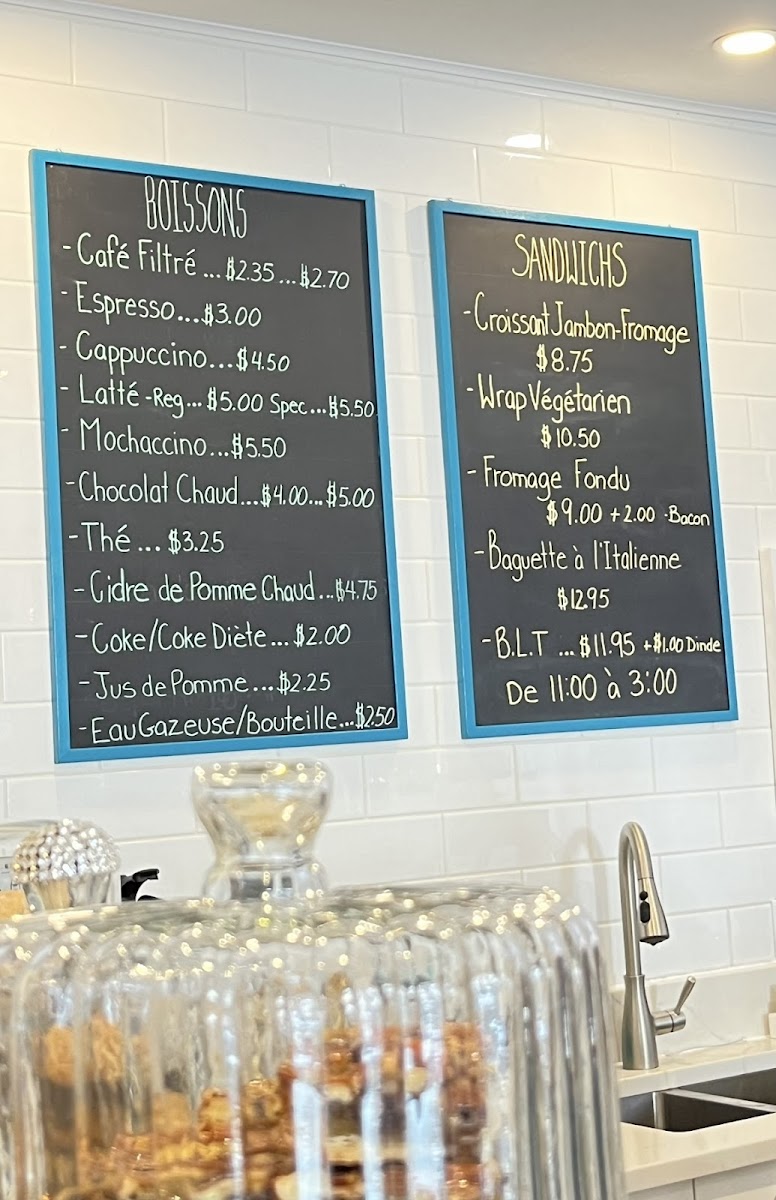 BOISSONS
- Café Filtré ... $2.35 ... $2.70
- Espresso ... $3.00
- Cappuccino ... $4.50
- Latté - Reg ... $5.00 Spec ... $5.50
- Mochaccino ... $5.50
- Chocolat Chaud ... $4.00 ... $5.00
- Thé ... $3.25
- Cidre de Pomme Chaud ... $4.75
- Coke/Coke Diète ... $2.00
- Jus de Pomme ... $2.25
- Eau Gazeuse/Bouteille ... $2.50
SANDWICHS
- Croissant Jambon-Fromage
$8.75
- Wrap Végétarien
$10.50
- Fromage Fondu
$9.00 + 2.00 - Bacon
- Baguette à l'Italienne
$12.95
- B.L.T ... $11.95 + $1.00 Dinde
De 11:00 à 3:00